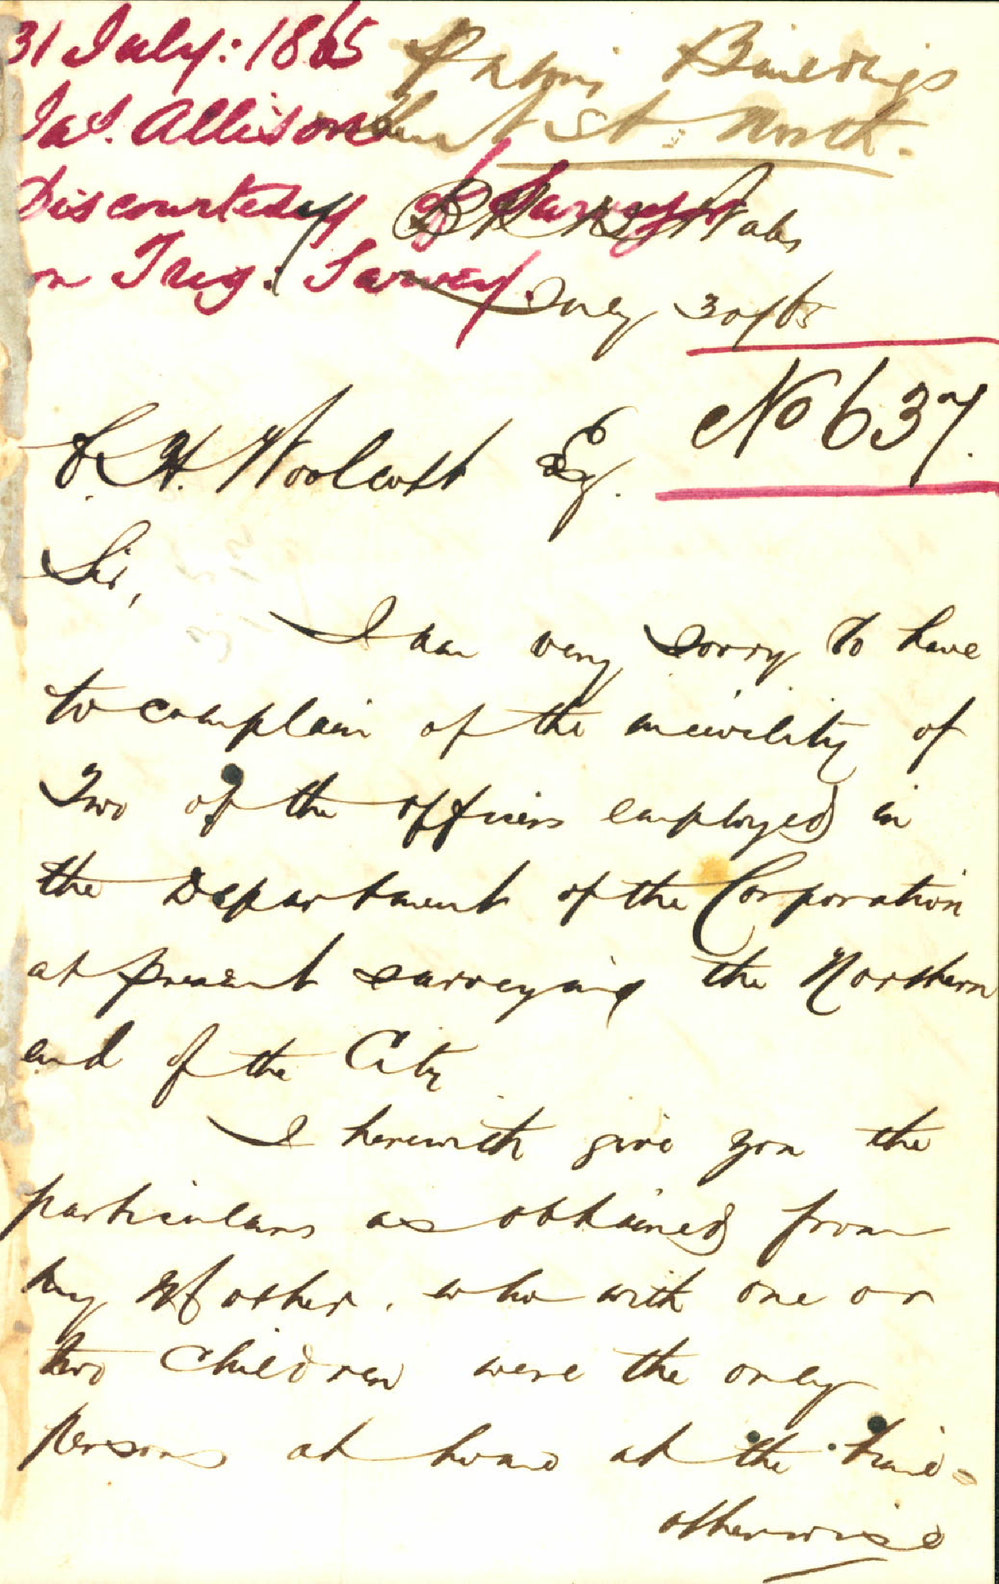 31 July: 1865
Jas. Allison
Discourtesy of Surveyor
on Trig: Survey.
Buildings
St North.
July 30/65
No 637.
C. H. Woolcott Esq.
Sir,
I am very sorry to have
to complain of the incivility of
Two of the officers employed in
the Department of the Corporation
at present surveying the Northern
end of the City
I herewith give you the
particulars as obtained from
my Mother. who with one or
two Children were the only
persons at home at the time -
otherwise